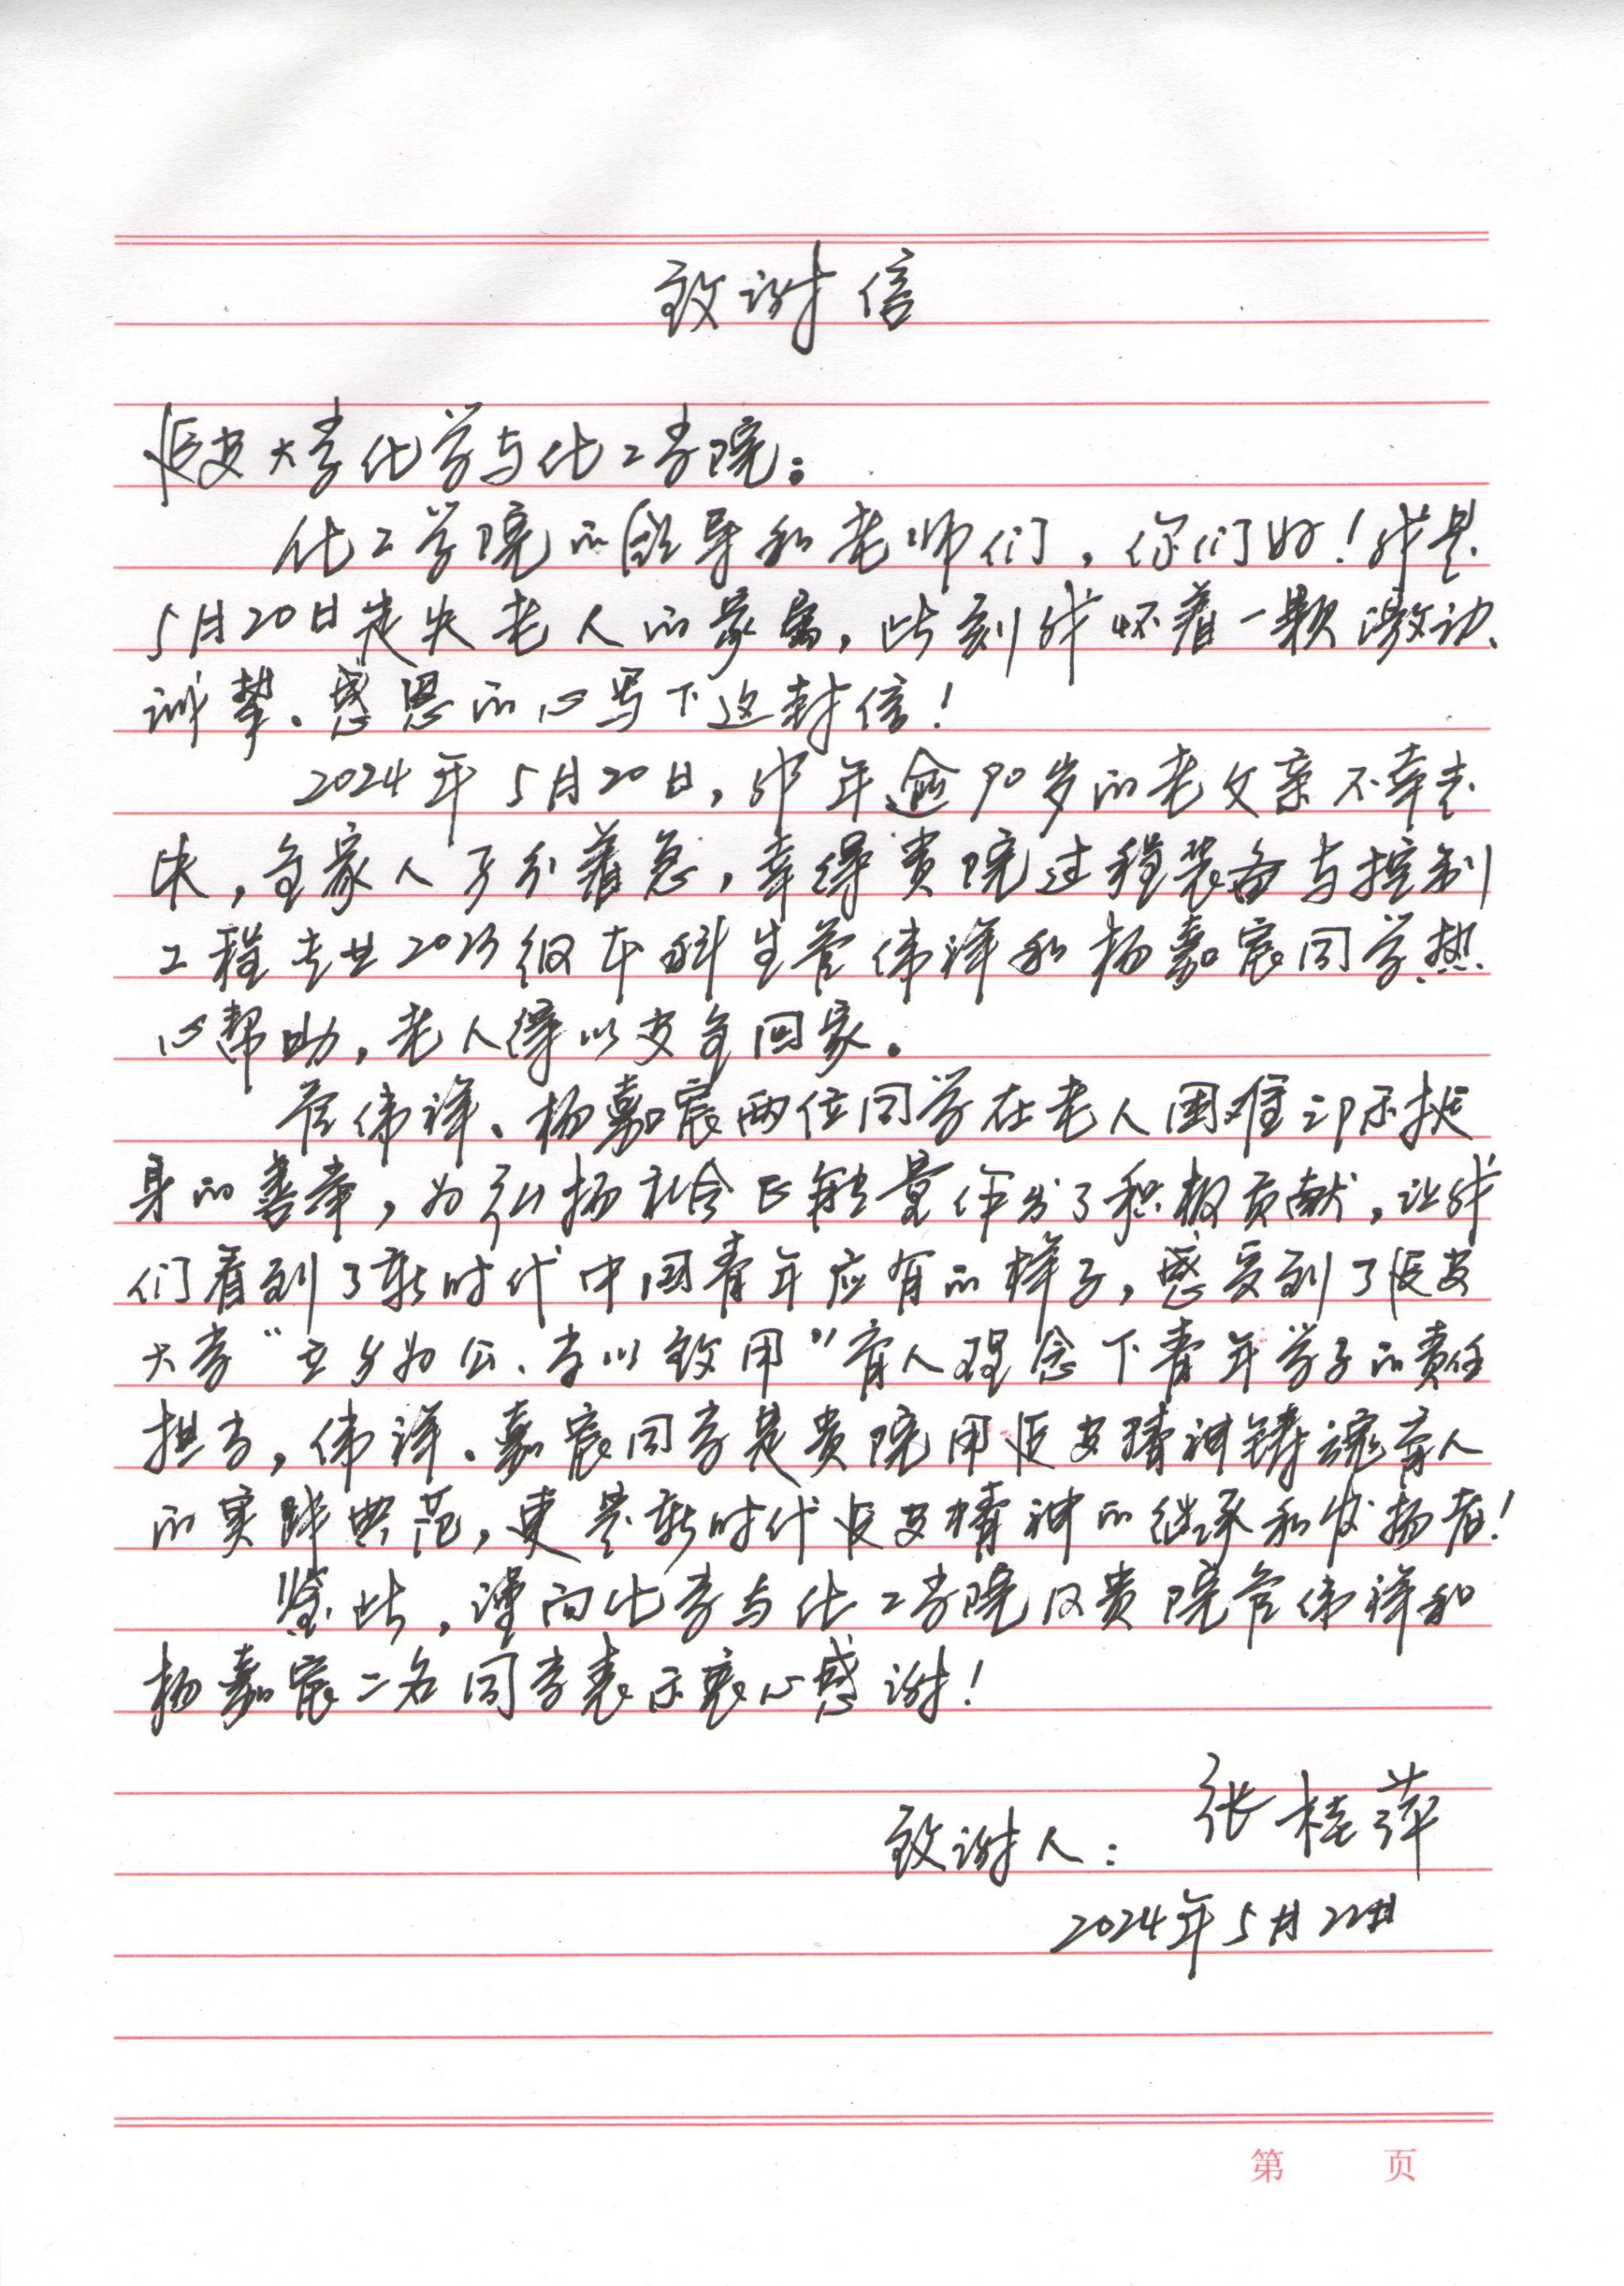 致谢信
延安大学化学与化工学院：
化工学院的领导和老师们，你们好！我是
5月20日走失老人的家属，此刻我怀着一颗激动、
诚挚、感恩的心写下这封信！
2024年5月20日，我年逾90岁的老父亲不幸走
失，全家人万分着急，幸得贵院过程装备与控制
工程专业2023级本科生管伟祥和杨嘉宸同学热
心帮助，老人得以安全回家。
管伟祥、杨嘉宸两位同学在老人困难之际挺
身的善举，为弘扬社会正能量作出了积极贡献，让我
们看到了新时代中国青年应有的样子，感受到了延安
大学“立身为公、学以致用”育人理念下青年学子的责任
担当，伟祥、嘉宸同学是贵院用延安精神铸魂育人
的实践典范，更是新时代延安精神的继承和发扬者！
鉴此，谨向化学与化工学院及贵院管伟祥和
杨嘉宸二名同学表示衷心感谢！
致谢人：张桂萍
2024年5月22日
第 页